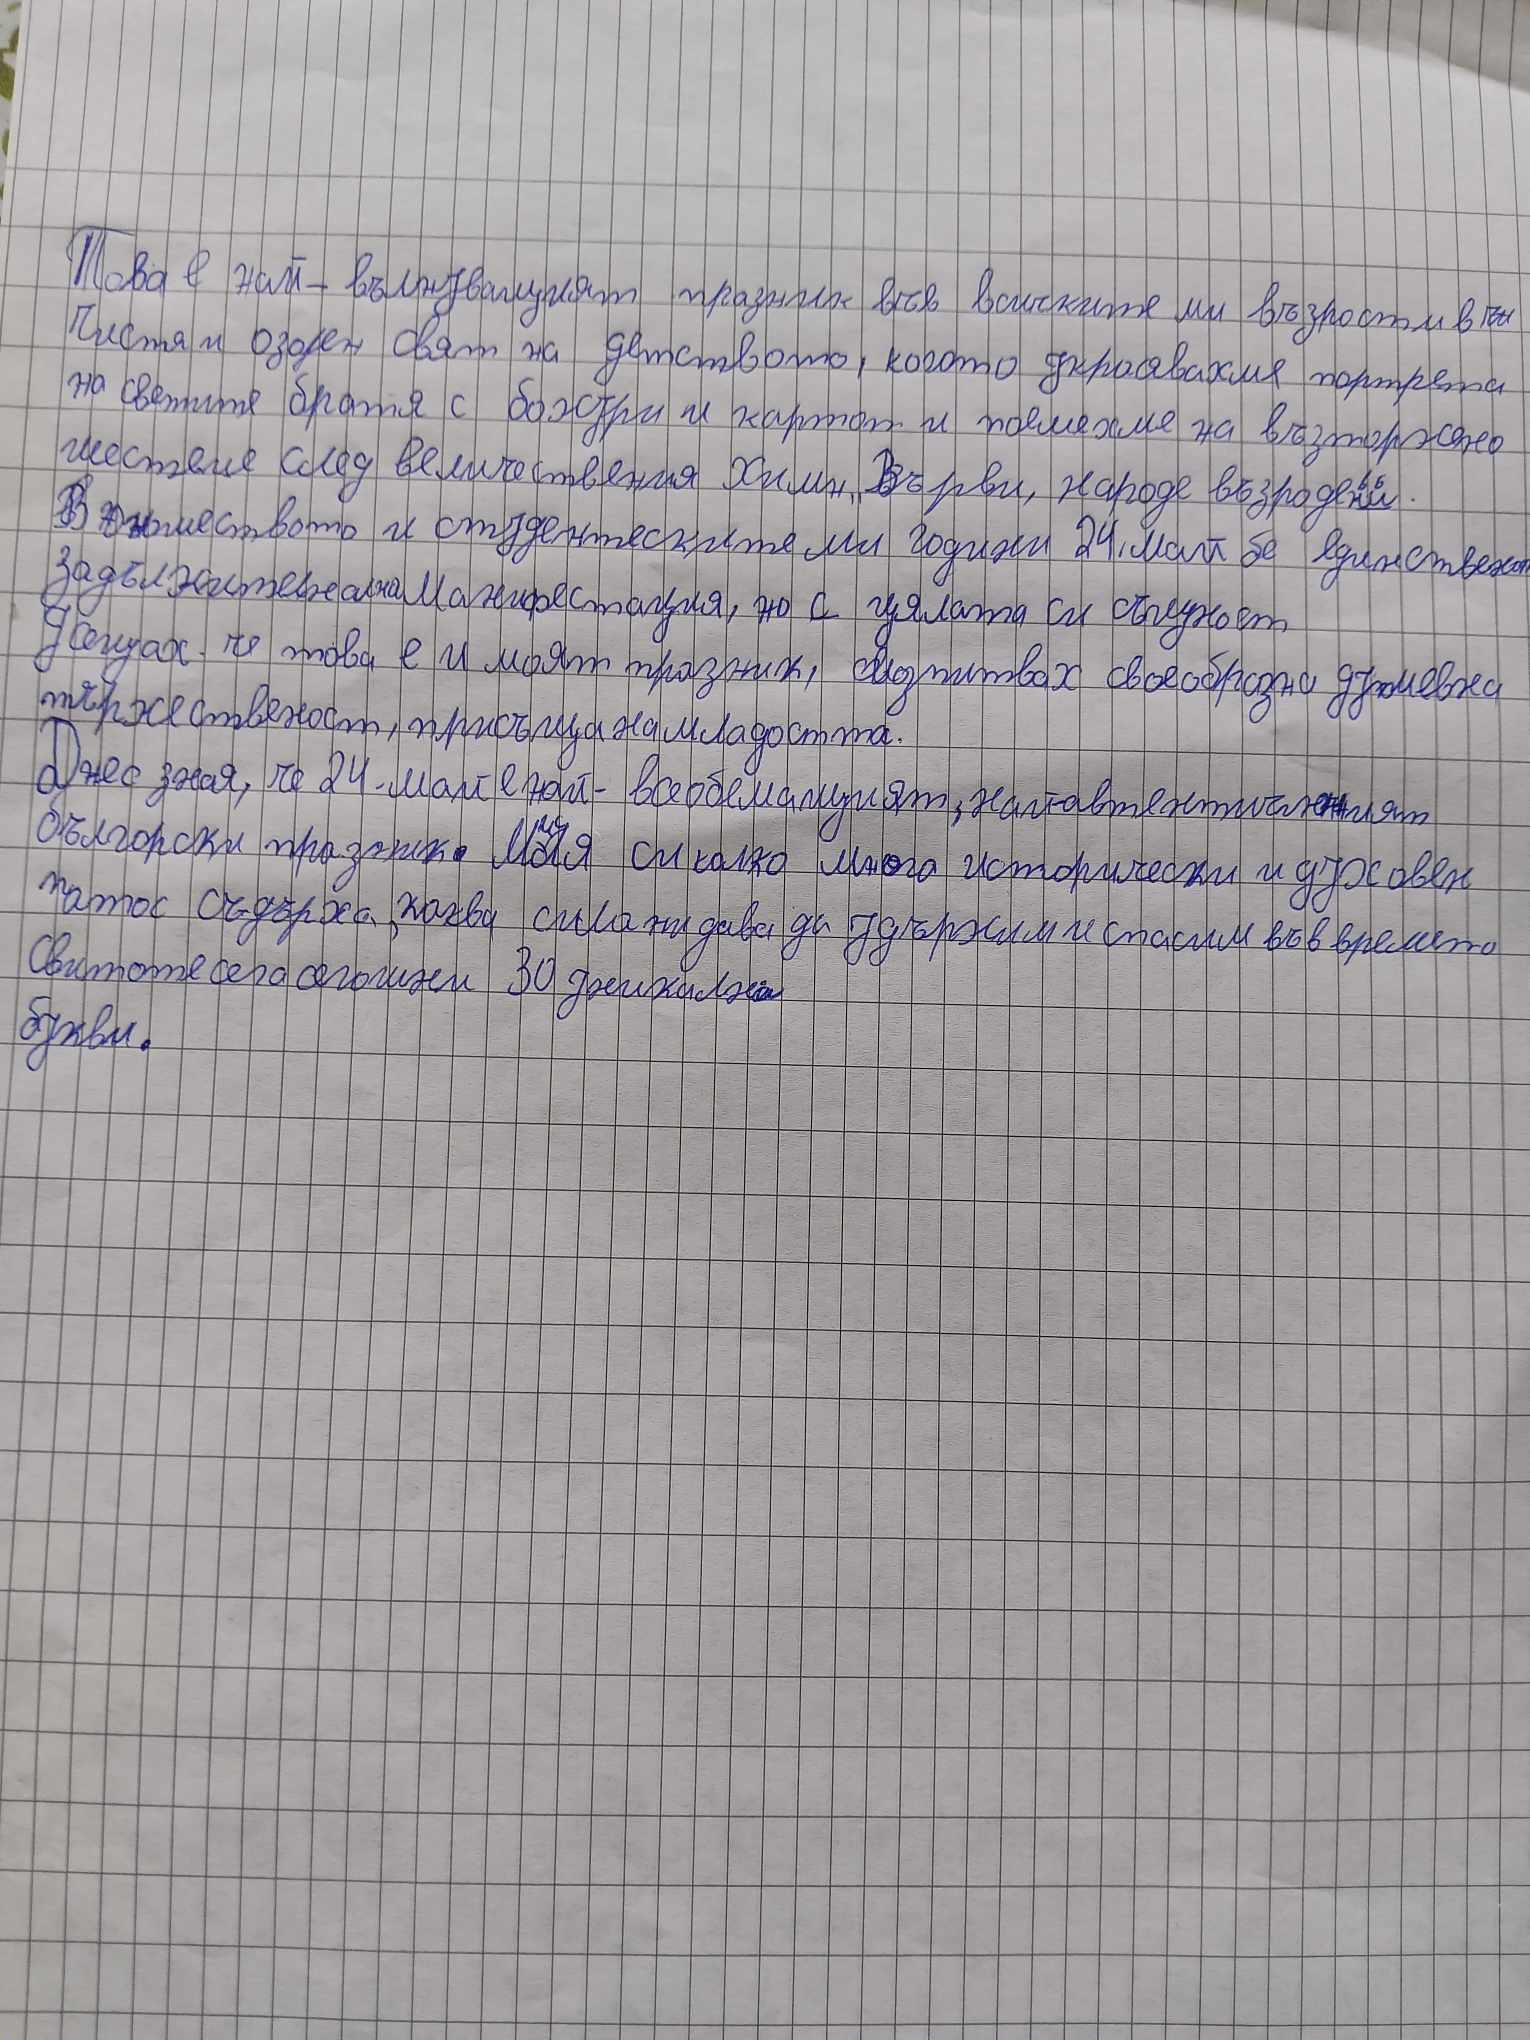 Това е най-вълнуващият празник във всичките ми възрасти в тъй
чистя и озарен свят на детството, когато украсявахме портрета
на светите братя с божури и картон и поемахме на възторжено
шествие след величествения химн „Върви, народе възродени".
В юношеството и студентеските ми години 24. май бе единствената
задължителнална Манифестация, но с цялата си същност
усещах. че това е и моят празник, изпитвах своеобразна душевна
тържественост, присъща на младостта.
Днес зная, че 24-май е най-всеобемащият, най-автентичният
български празник. Мисля си колко много исторически и духовен
патос съдържа, каква сила ни дава да удържим и спасим във времето
Свитоте сега осгошни 30 уникални
букви.